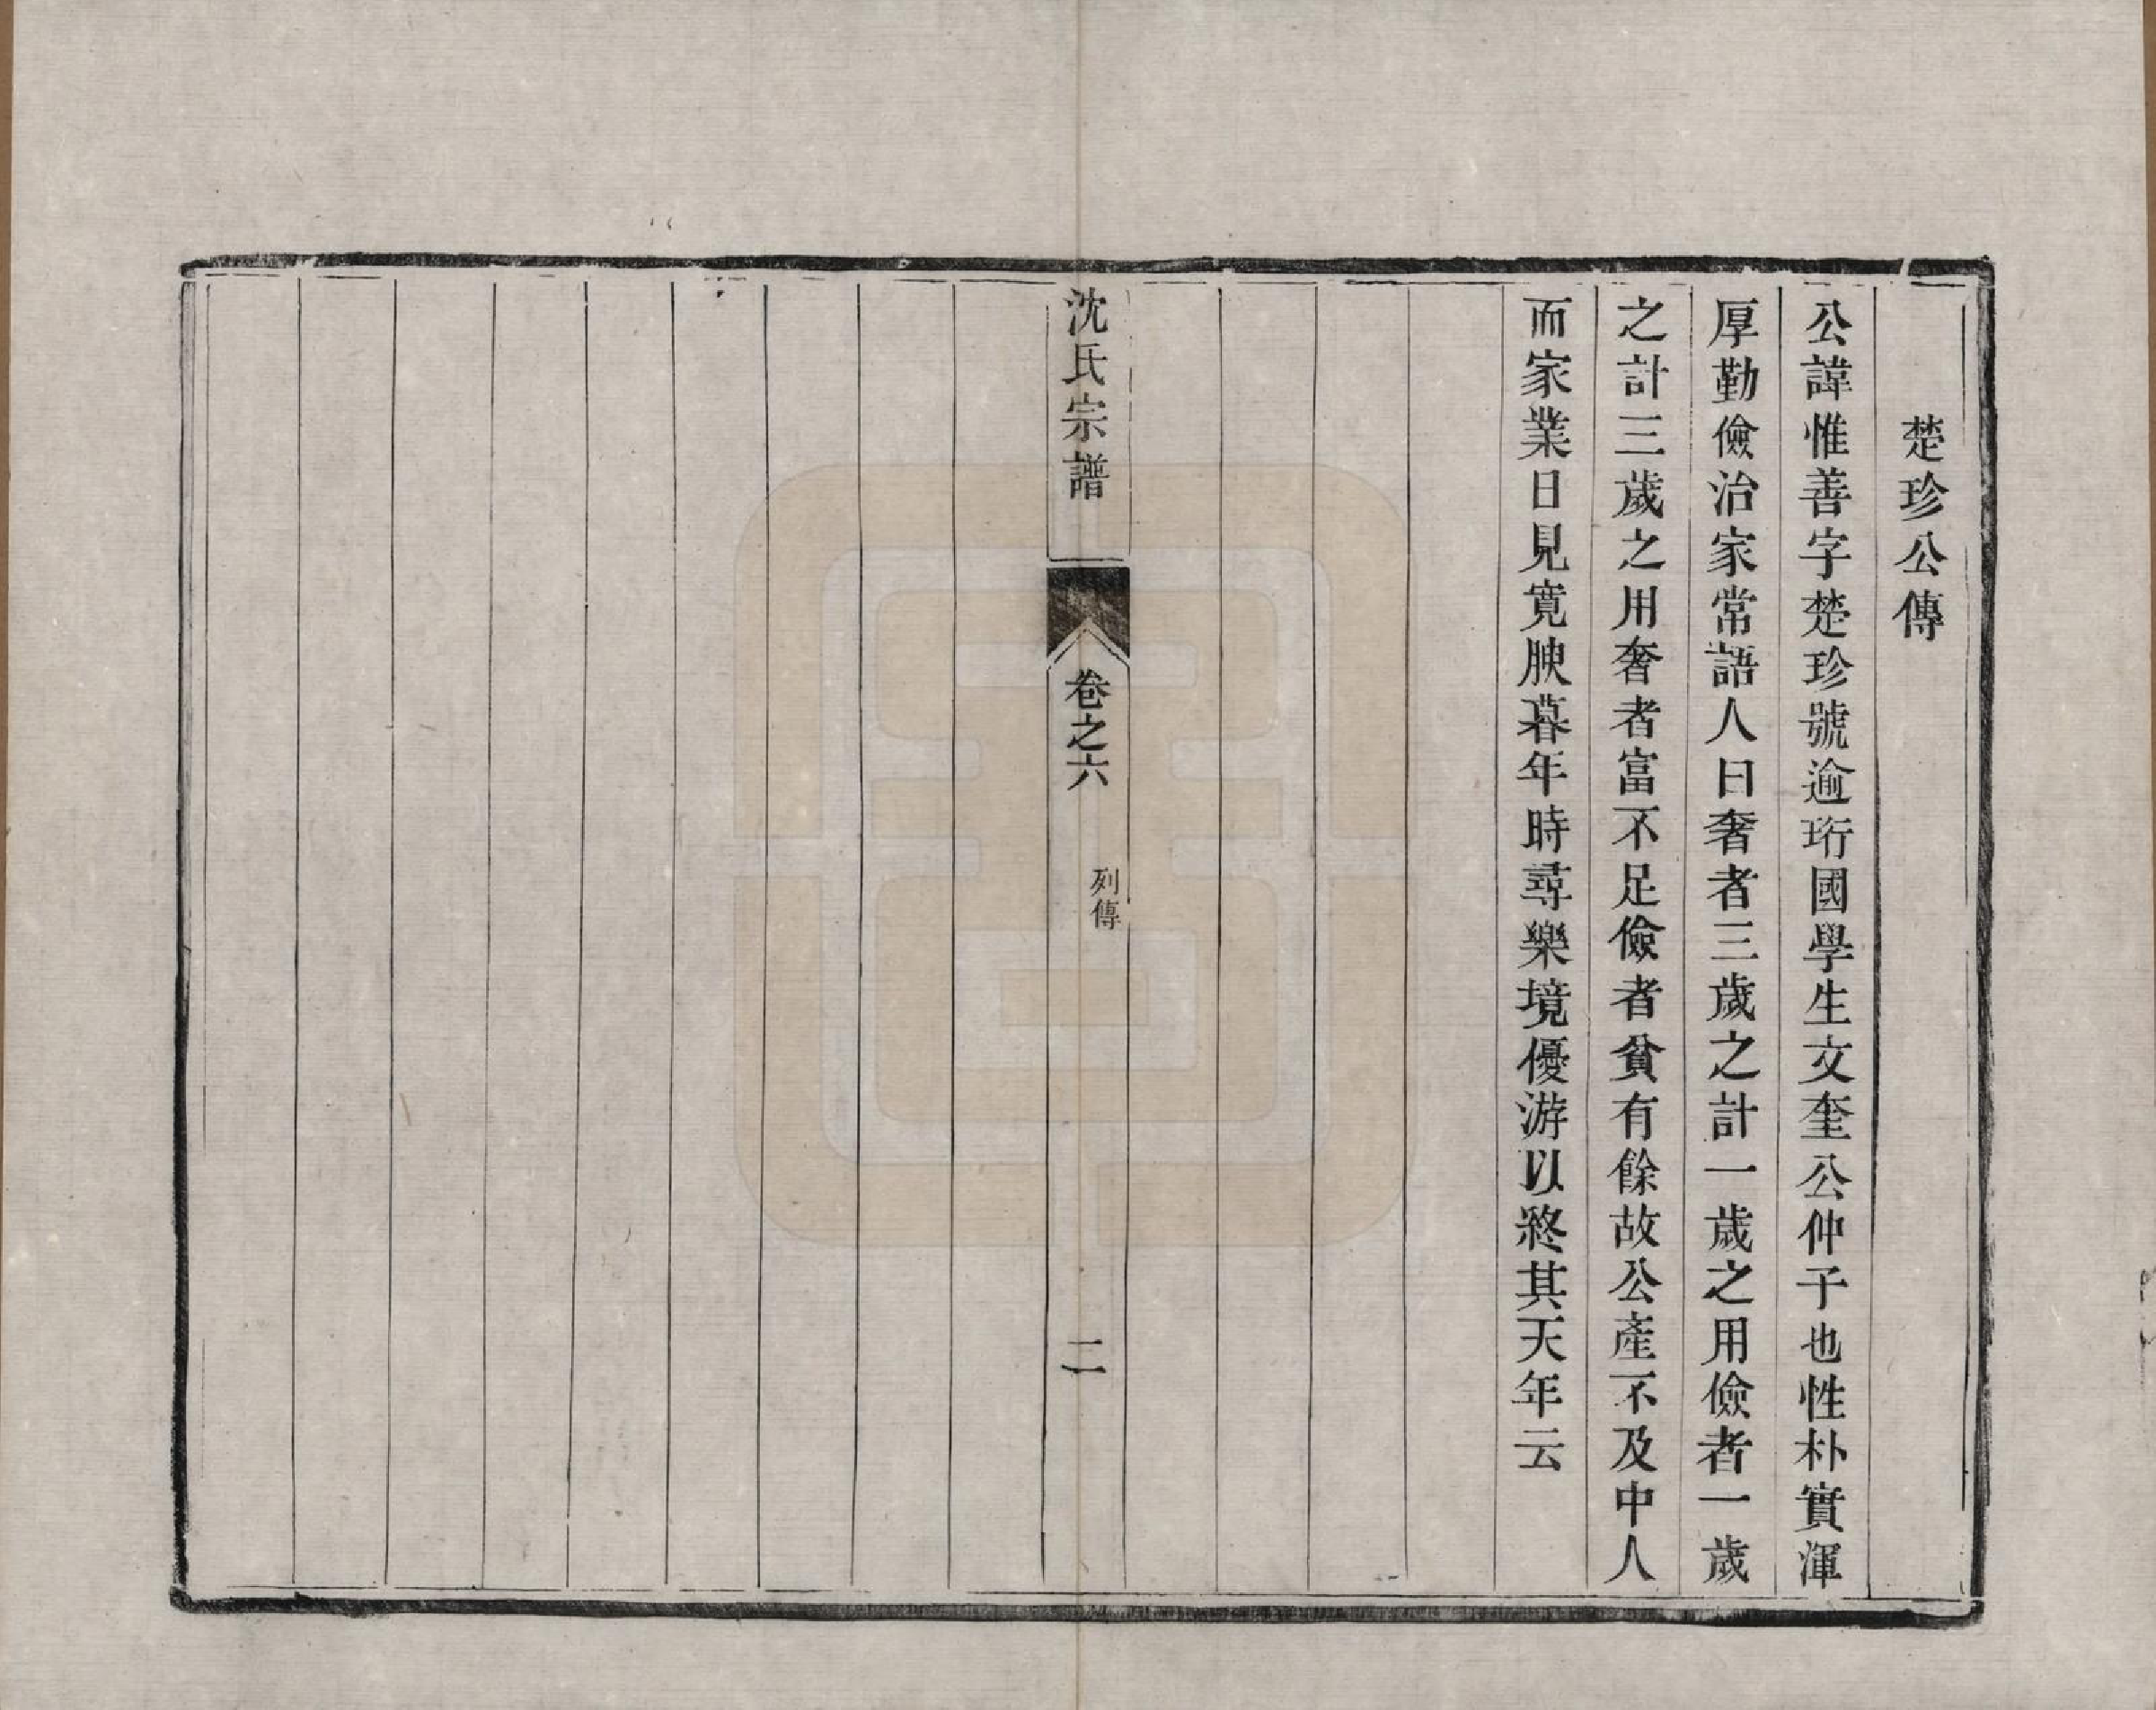 楚珍公傳
公諱惟善字楚珍號逾珩國學生文奎公仲子也性朴實渾
厚勤儉治家常語人曰奢者三歲之計一歲之用儉者一歲
之計三歲之用奢者富不足儉者貧有餘故公產不及中人
而家業日見寬腴暮年時尋樂境優游以終其天年云
沈氏宗譜
卷之六
列傳
二